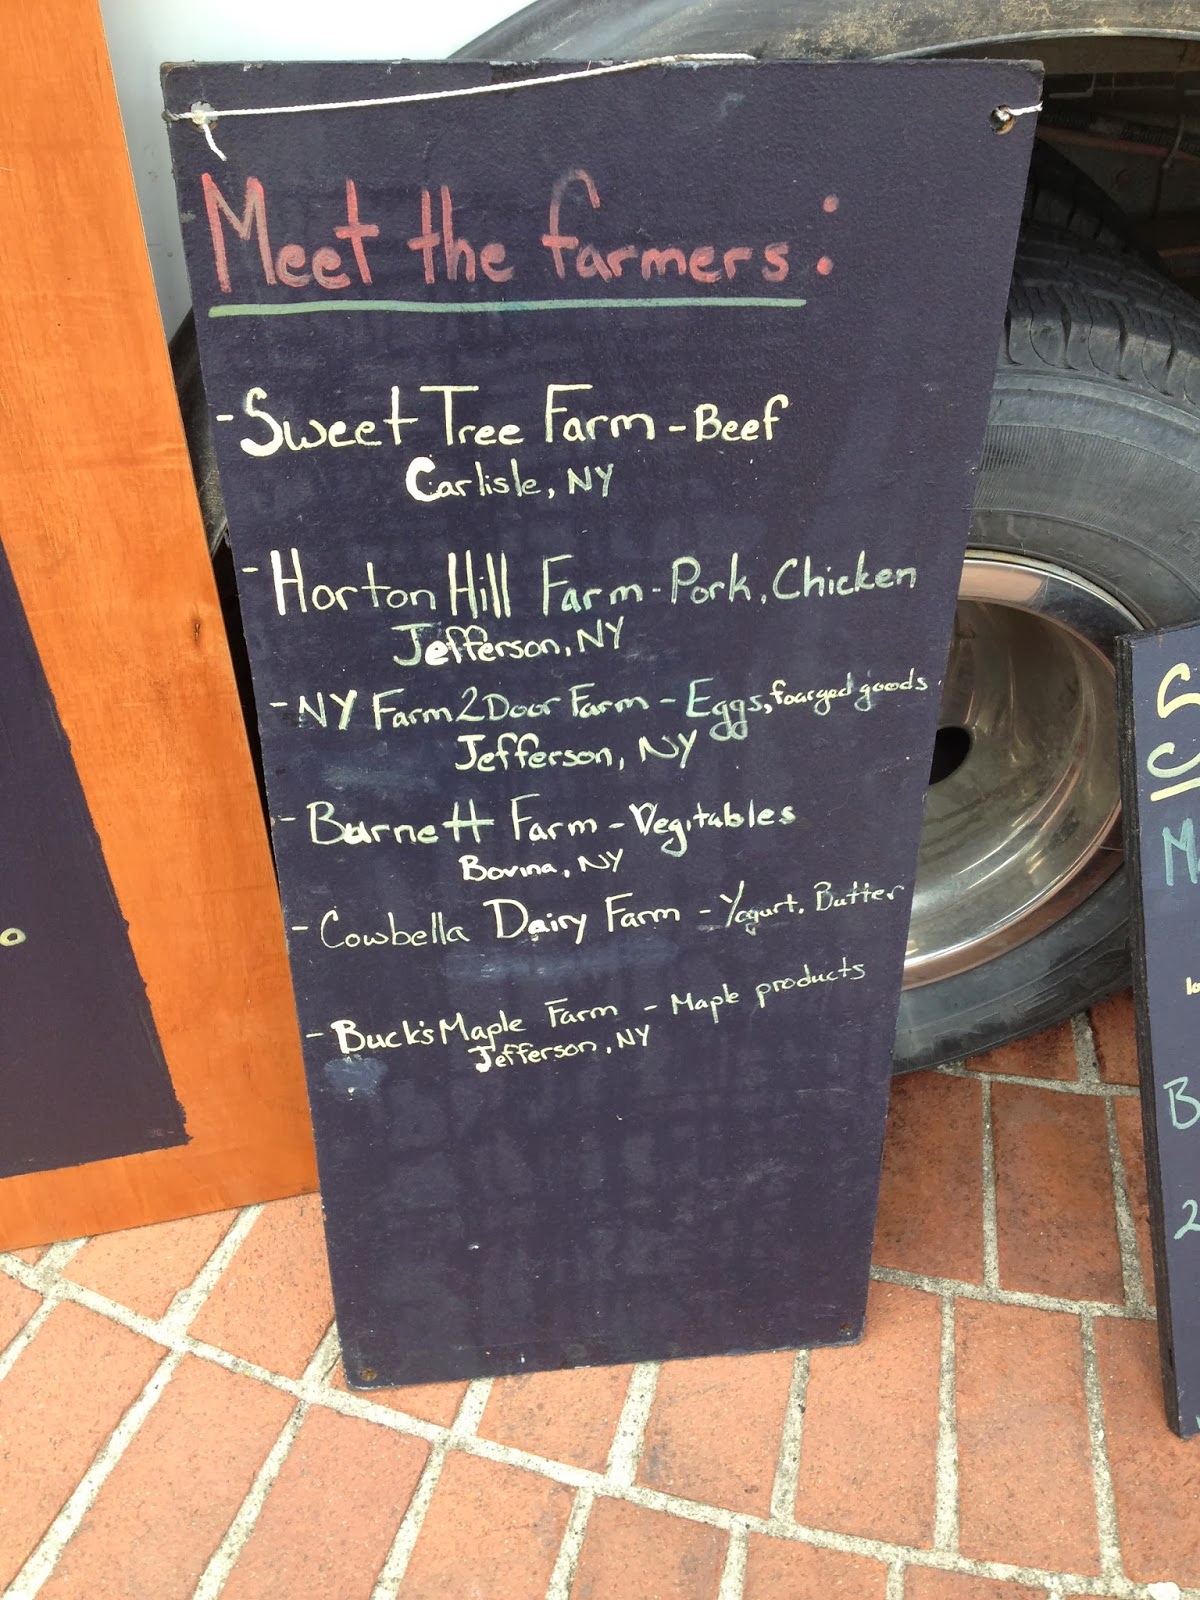 Meet the farmers:
- Sweet Tree Farm - Beef
Carlisle, NY
- Horton Hill Farm - Pork, Chicken
Jefferson, NY
- NY Farm2Door Farm - Eggs, foarged goods
Jefferson, NY
- Burnett Farm - Vegitables
Bovina, NY
- Cowbella Dairy Farm - Yogurt, Butter
- Buck's Maple Farm - Maple products
Jefferson, NY